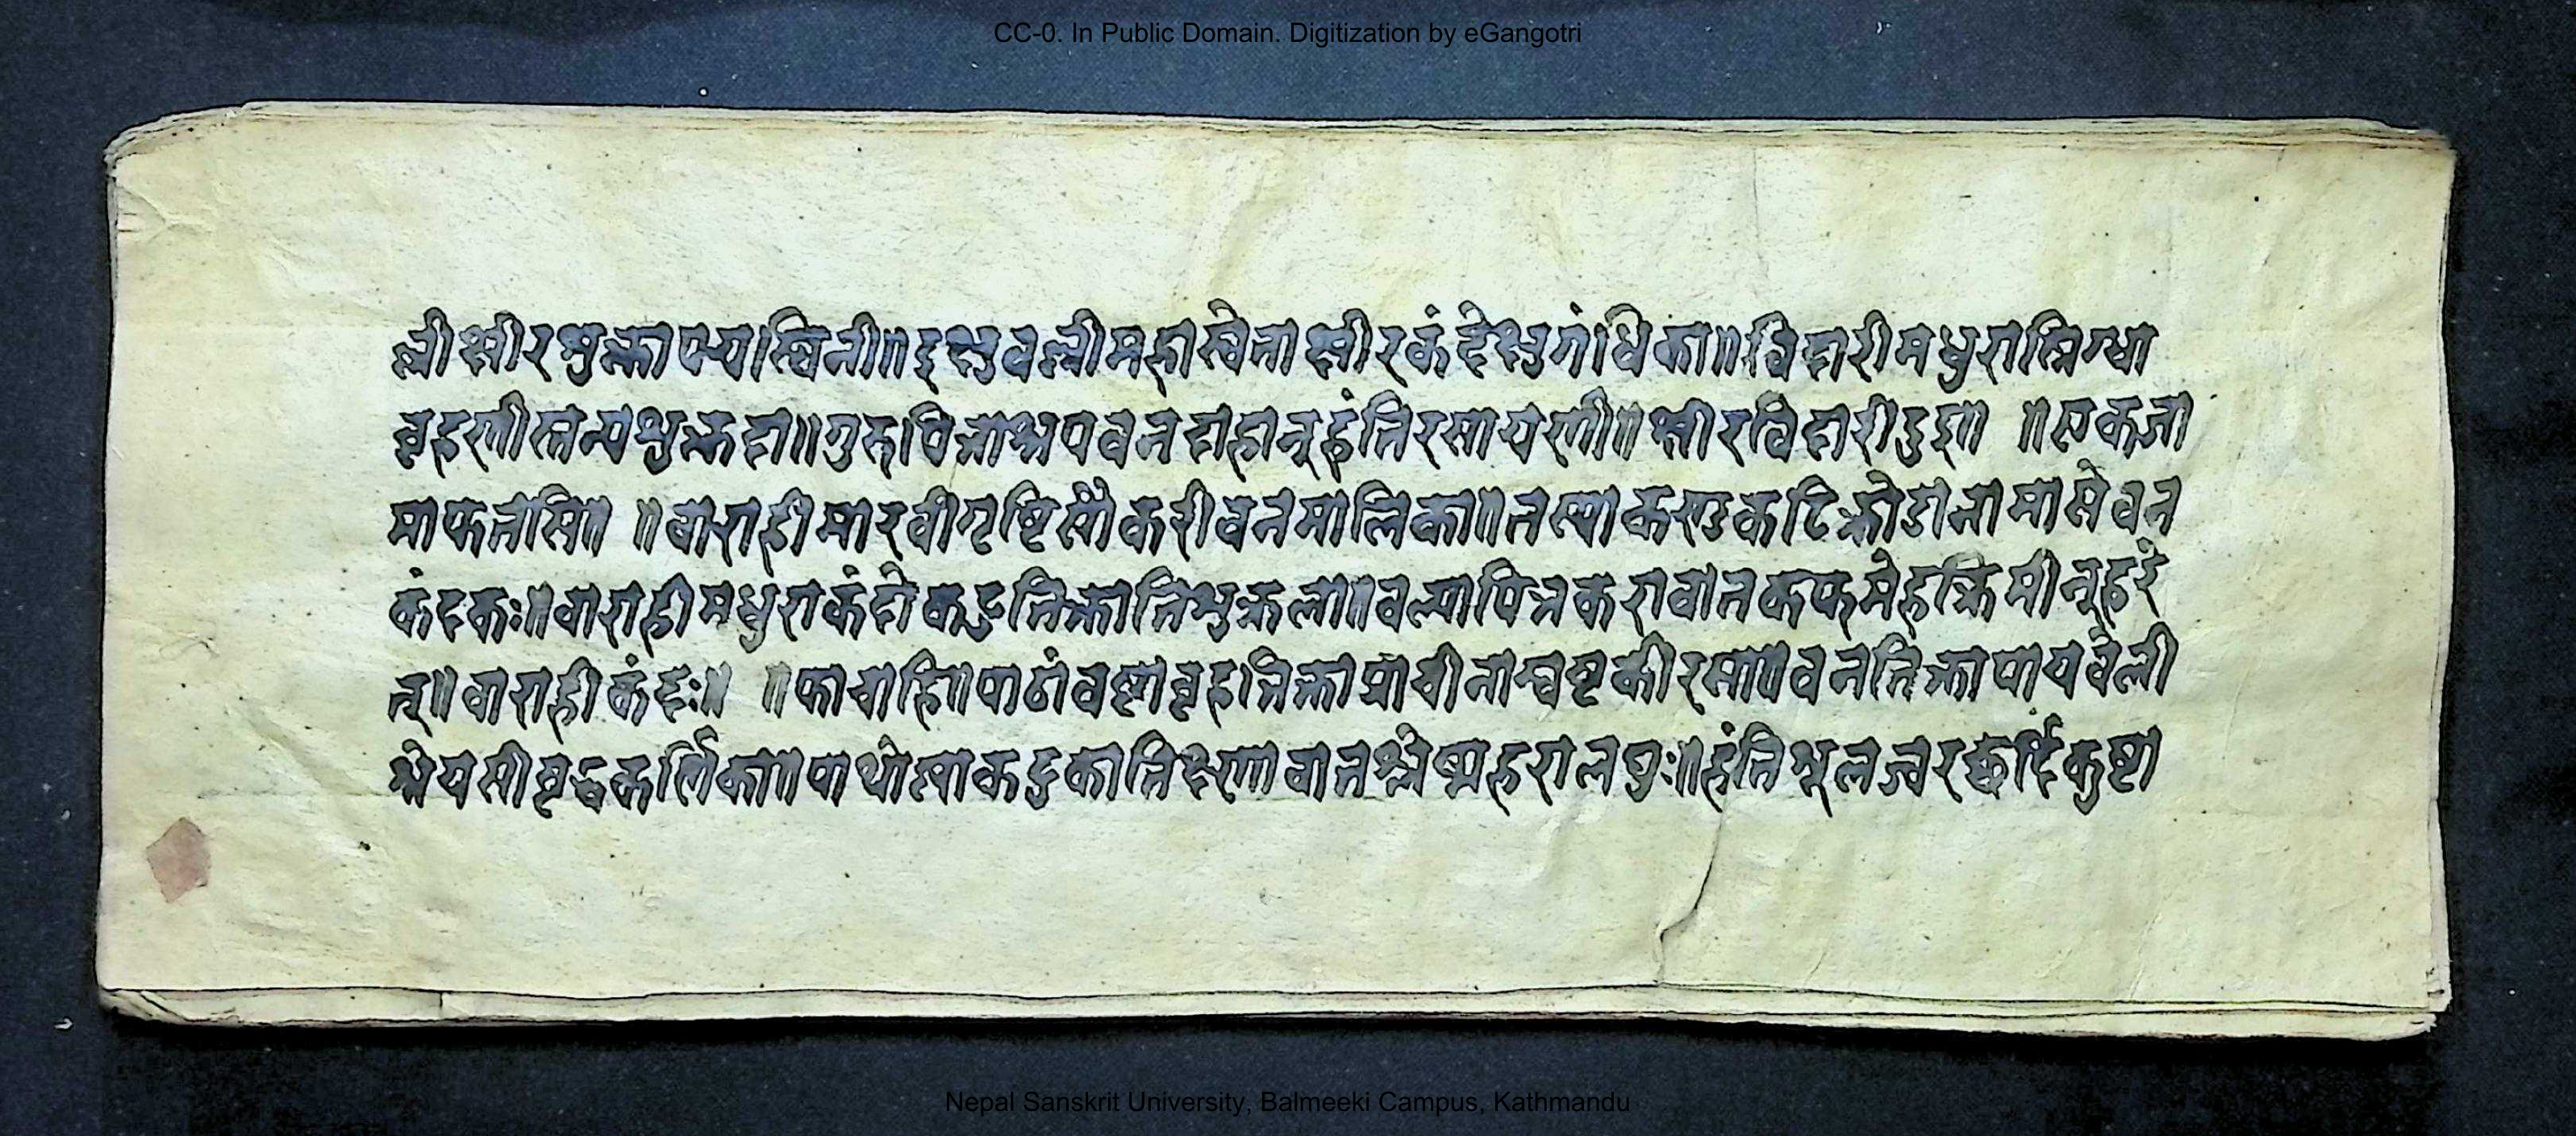 CC-0. In Public Domain. Digitization by eGangotri
ल्ली क्षीरशुक्ला पयस्विनी॥ इक्षुवल्ली महाश्वेता क्षीरकंदेक्षुगंधिका॥ विदारी मधुरा स्निग्धा
बृहणी स्तन्यशुक्रदा॥ गुरु पित्तास्रपवनदाहान् हंति रसायणी॥ क्षीरविदारी दुदु॥ ॥
माफलासि॥ ॥ वाराही मारवी गृष्टि सौकरी वनमालिका॥ तस्या कन्दु कटि क्रोडा नामा सेवन
कंदकः॥ वाराही मधुरा कंदो कटु तिक्ताति शुक्रला॥ बल्या पित्तकरा वातकफमेहक्रिमीन् हरे
त्॥ वाराही कंदः॥ ॥ पाठां वष्ठा बृहत्तिक्ता प्राचीनाम्बष्टकी रसा॥ वनतिक्ता पायवेली
श्रेयसी वृद्धकर्णिका॥ पाथोस्मा कटुका तिक्ष्णा वातश्लेष्महरा लघुः॥ हंति शूलज्वरछर्दिकुष्टा
Nepal Sanskrit University, Balmeeki Campus, Kathmandu